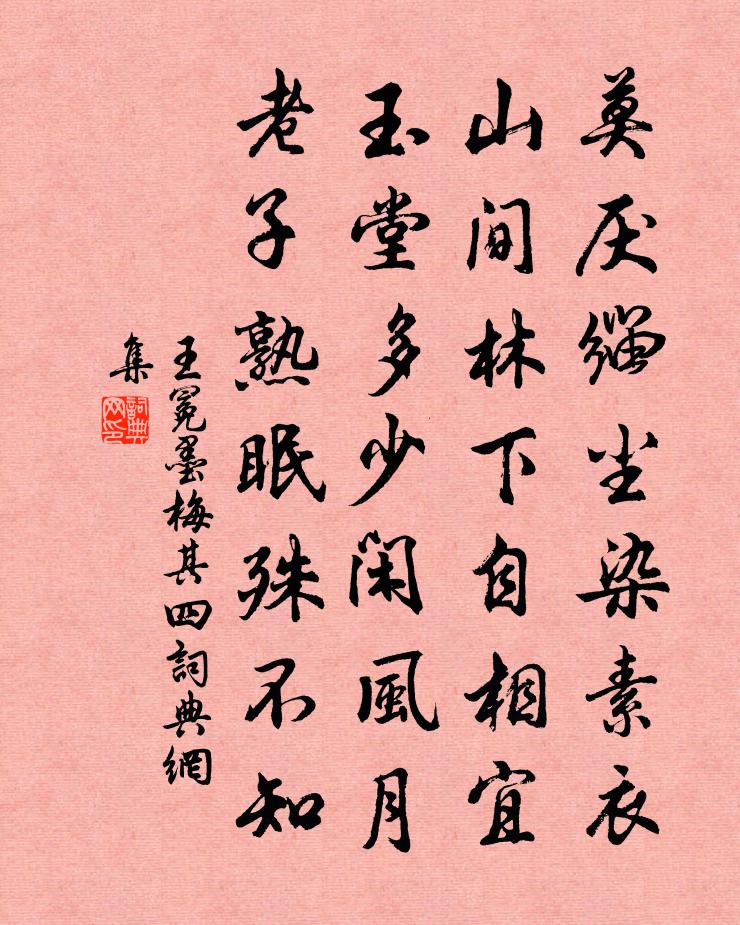 莫厌缁尘染素衣
山间林下自相宜
玉堂多少闲風月
老子熟眠殊不知
王冕墨梅其四詞典網
集
詞典
网印